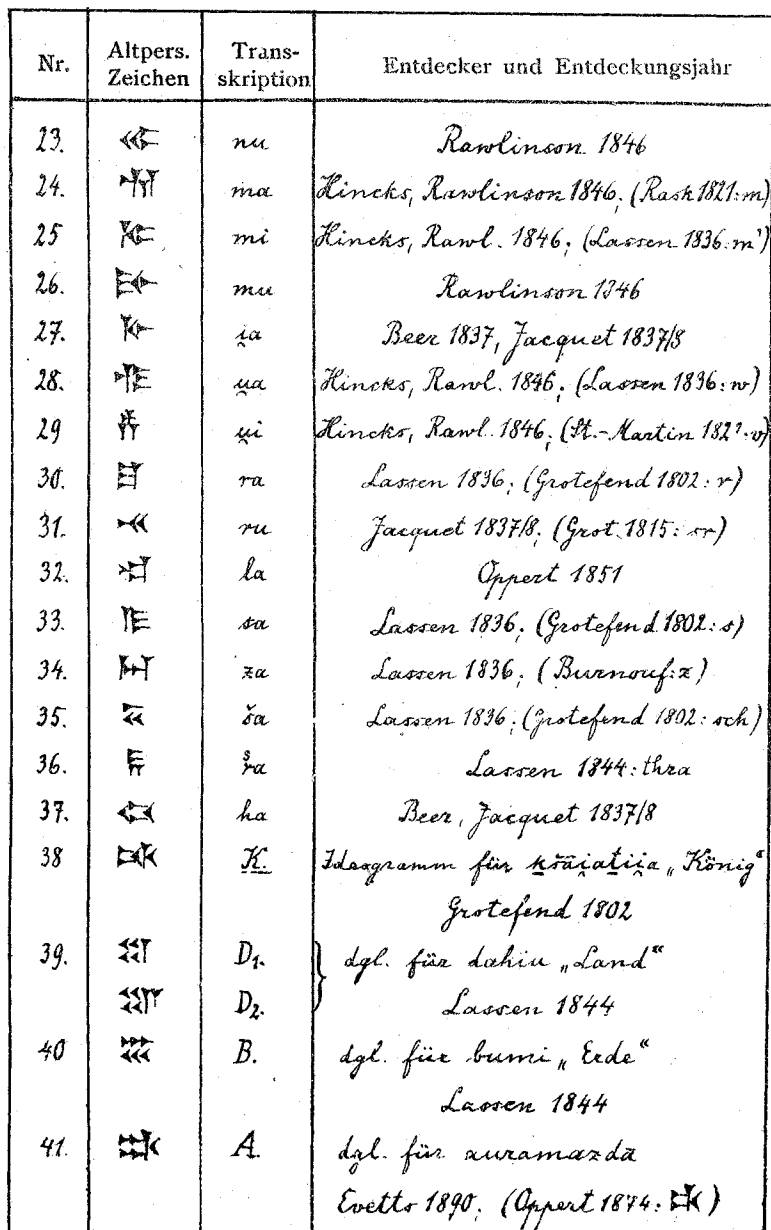 Nr. Altpers. Zeichen Transskription Entdecker und Entdeckungsjahr
23. 𐎵 nu Rawlinson 1846
24. 𐎶 ma Hincks, Rawlinson 1846; (Rask 1821: m)
25 𐎷 mi Hincks, Rawl. 1846; (Lassen 1836: m')
26. 𐎸 mu Rawlinson 1846
27. 𐎹 i̯a Beer 1837, Jacquet 1837/8
28. 𐎺 u̯a Hincks, Rawl. 1846; (Lassen 1836: w)
29 𐎻 u̯i Hincks, Rawl. 1846; (St.-Martin 182?: v)
30. 𐎼 ra Lassen 1836; (Grotefend 1802: r)
31. 𐎽 ru Jacquet 1837/8; (Grot. 1815: sr)
32. 𐎾 la Oppert 1851
33. 𐎿 sa Lassen 1836; (Grotefend 1802: s)
34. 𐏀 za Lassen 1836; (Burnouf: z)
35. 𐏁 ša Lassen 1836; (Grotefend 1802: sch)
36. 𐏂 šra Lassen 1844: thra
37. 𐏃 ha Beer, Jacquet 1837/8
38 𐏋 K. Ideogramm für ḵšāi̯aṯii̯a „König“
Grotefend 1802
39. 𐏌 D₁. dgl. für dahiu „Land“
𐏍 D₂. Lassen 1844
40 𐏏 B. dgl. für bumi „Erde“
Lassen 1844
41. 𐏈 A. dgl. für auramazda
Evetts 1890; (Oppert 1874: 𐏉)